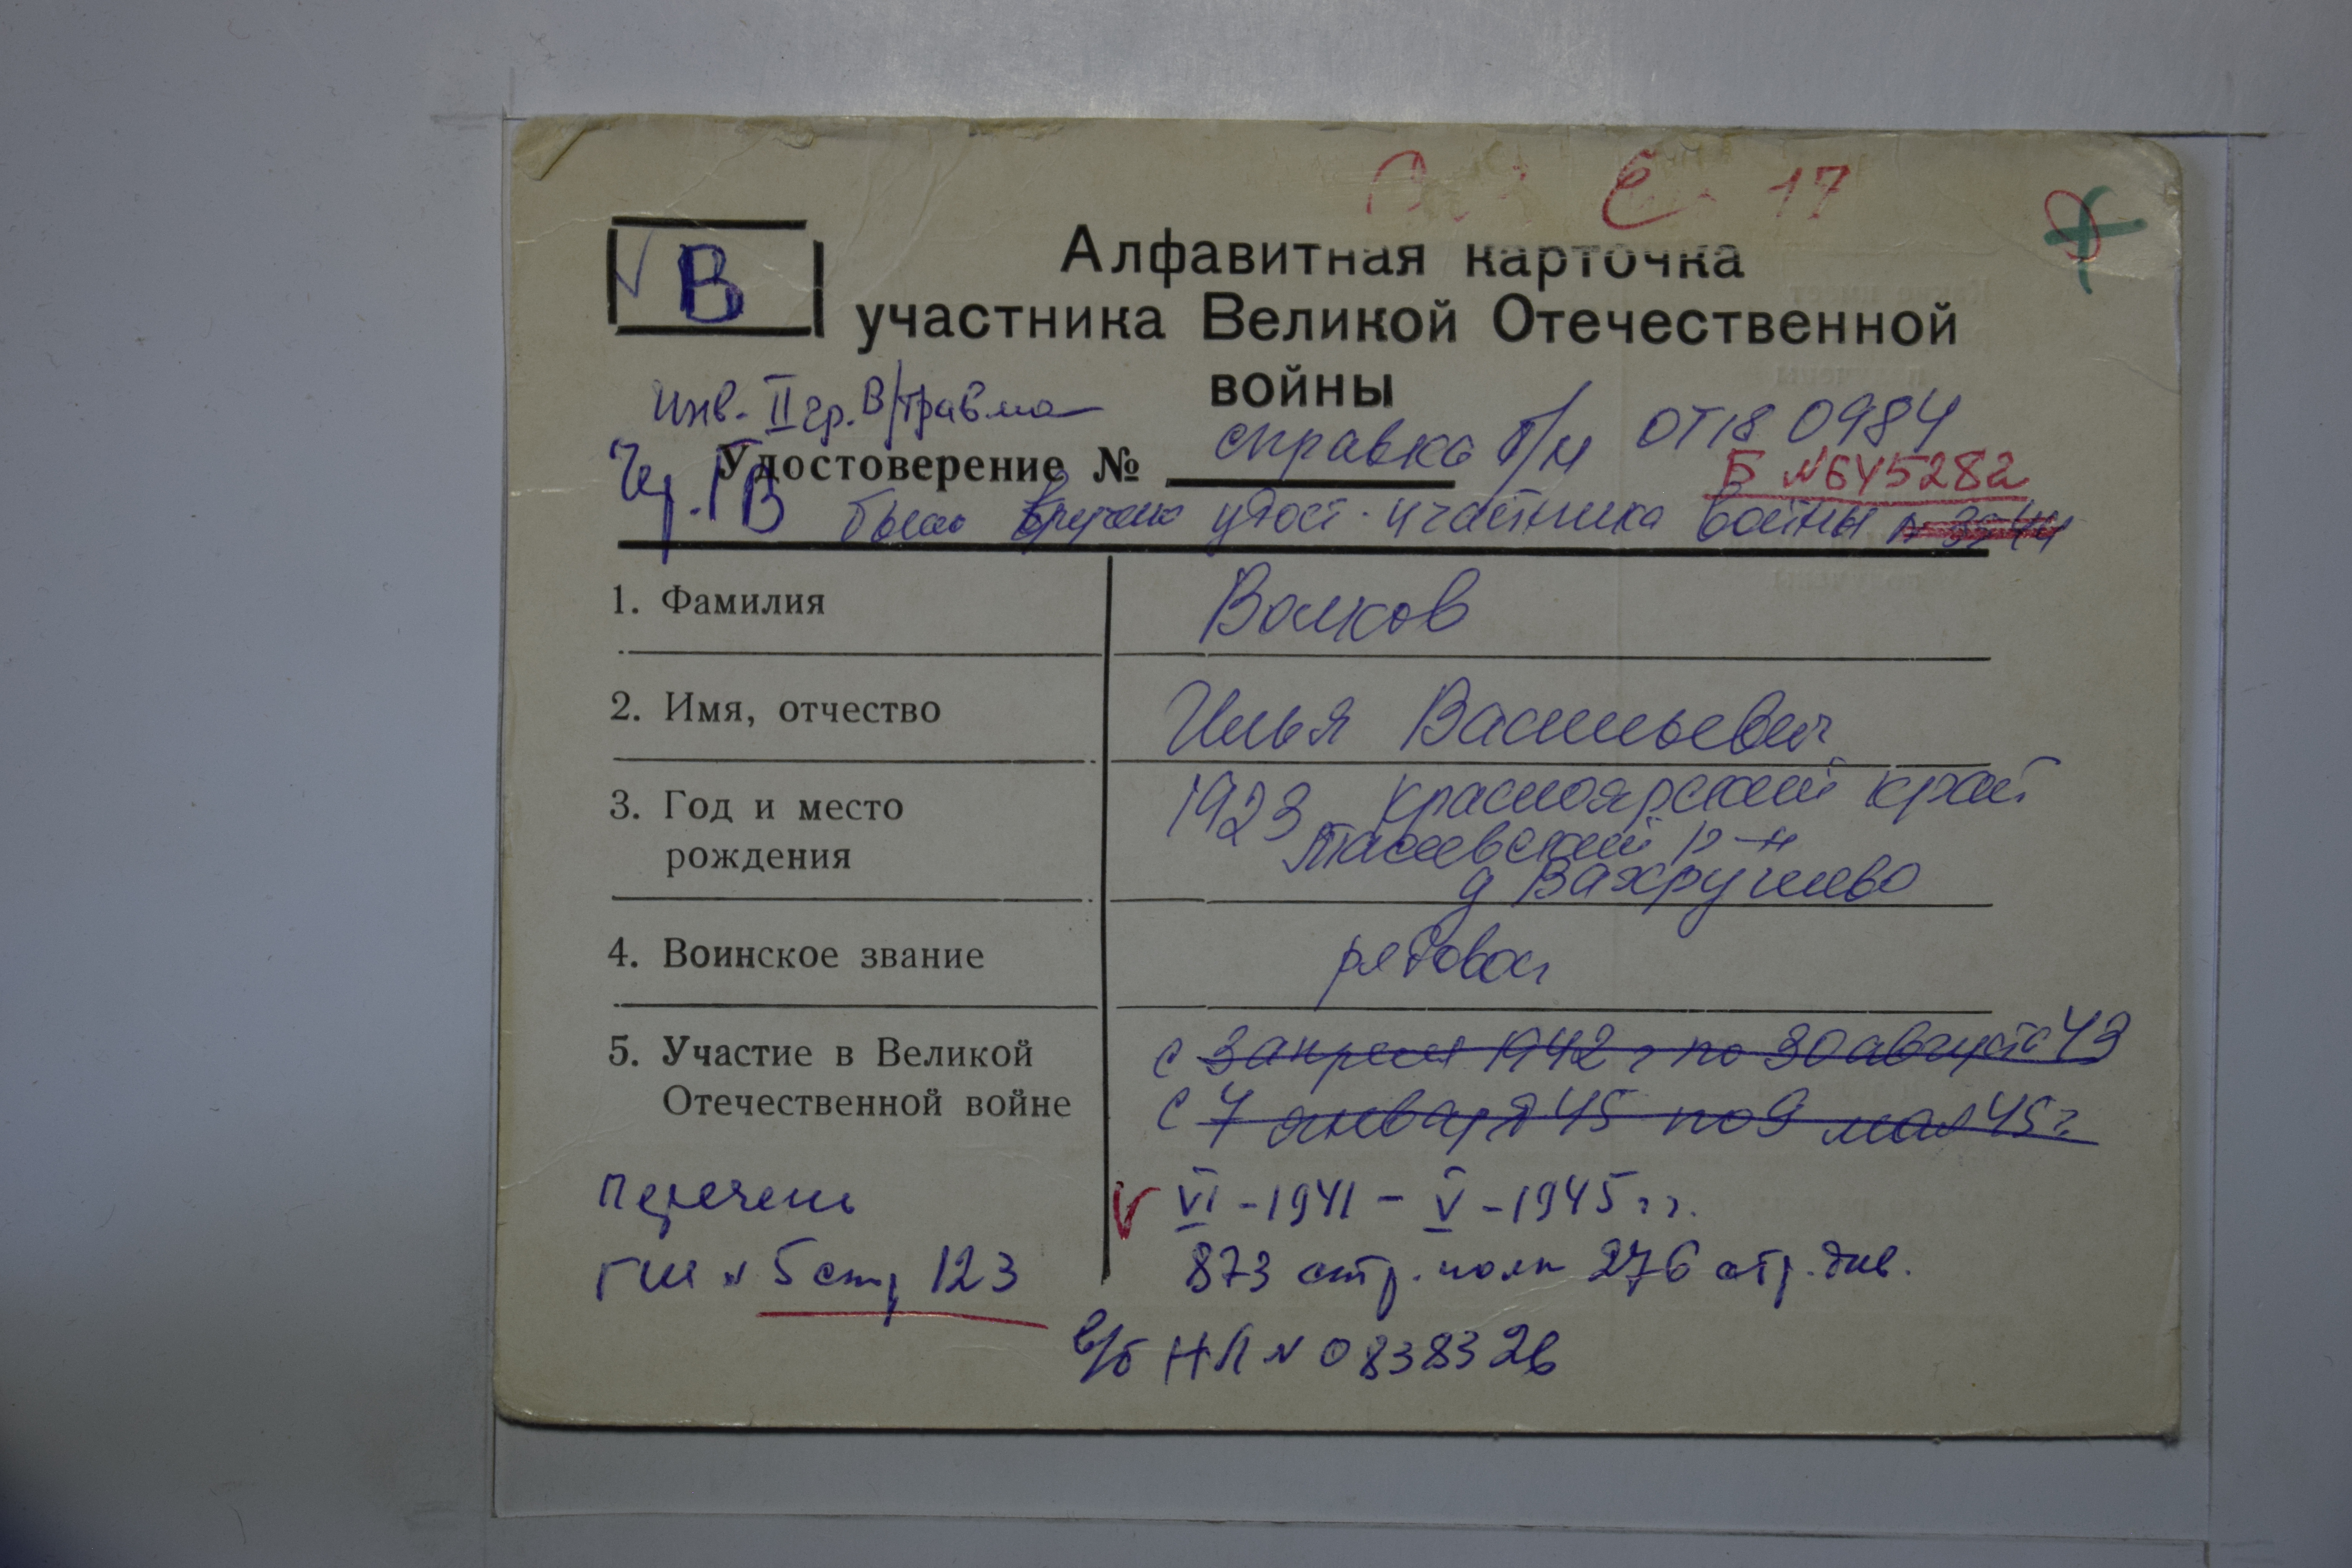 17
В
Алфавитная карточка
участника Великой Отечественной
войны
инв. II гр. В/травма
Удостоверение № справка б/н от 18 09 84
Б №645282
В было вручено удост. участника войны
1. Фамилия Волков
2. Имя, отчество Илья Васильевич
3. Год и место рождения 1923 Красноярский край
Тасеевский р-н
д Вахрушево
4. Воинское звание рядовой
5. Участие в Великой Отечественной войне с 3 апреля 1942 г по 30 августа 43
с 7 января 45 по 9 мая 45 г.
Перечень V VI - 1941 - V - 1945 гг.
ГШ № 5 стр 123 873 стр. полк 276 стр. див.
в/б НЛ № 0838326